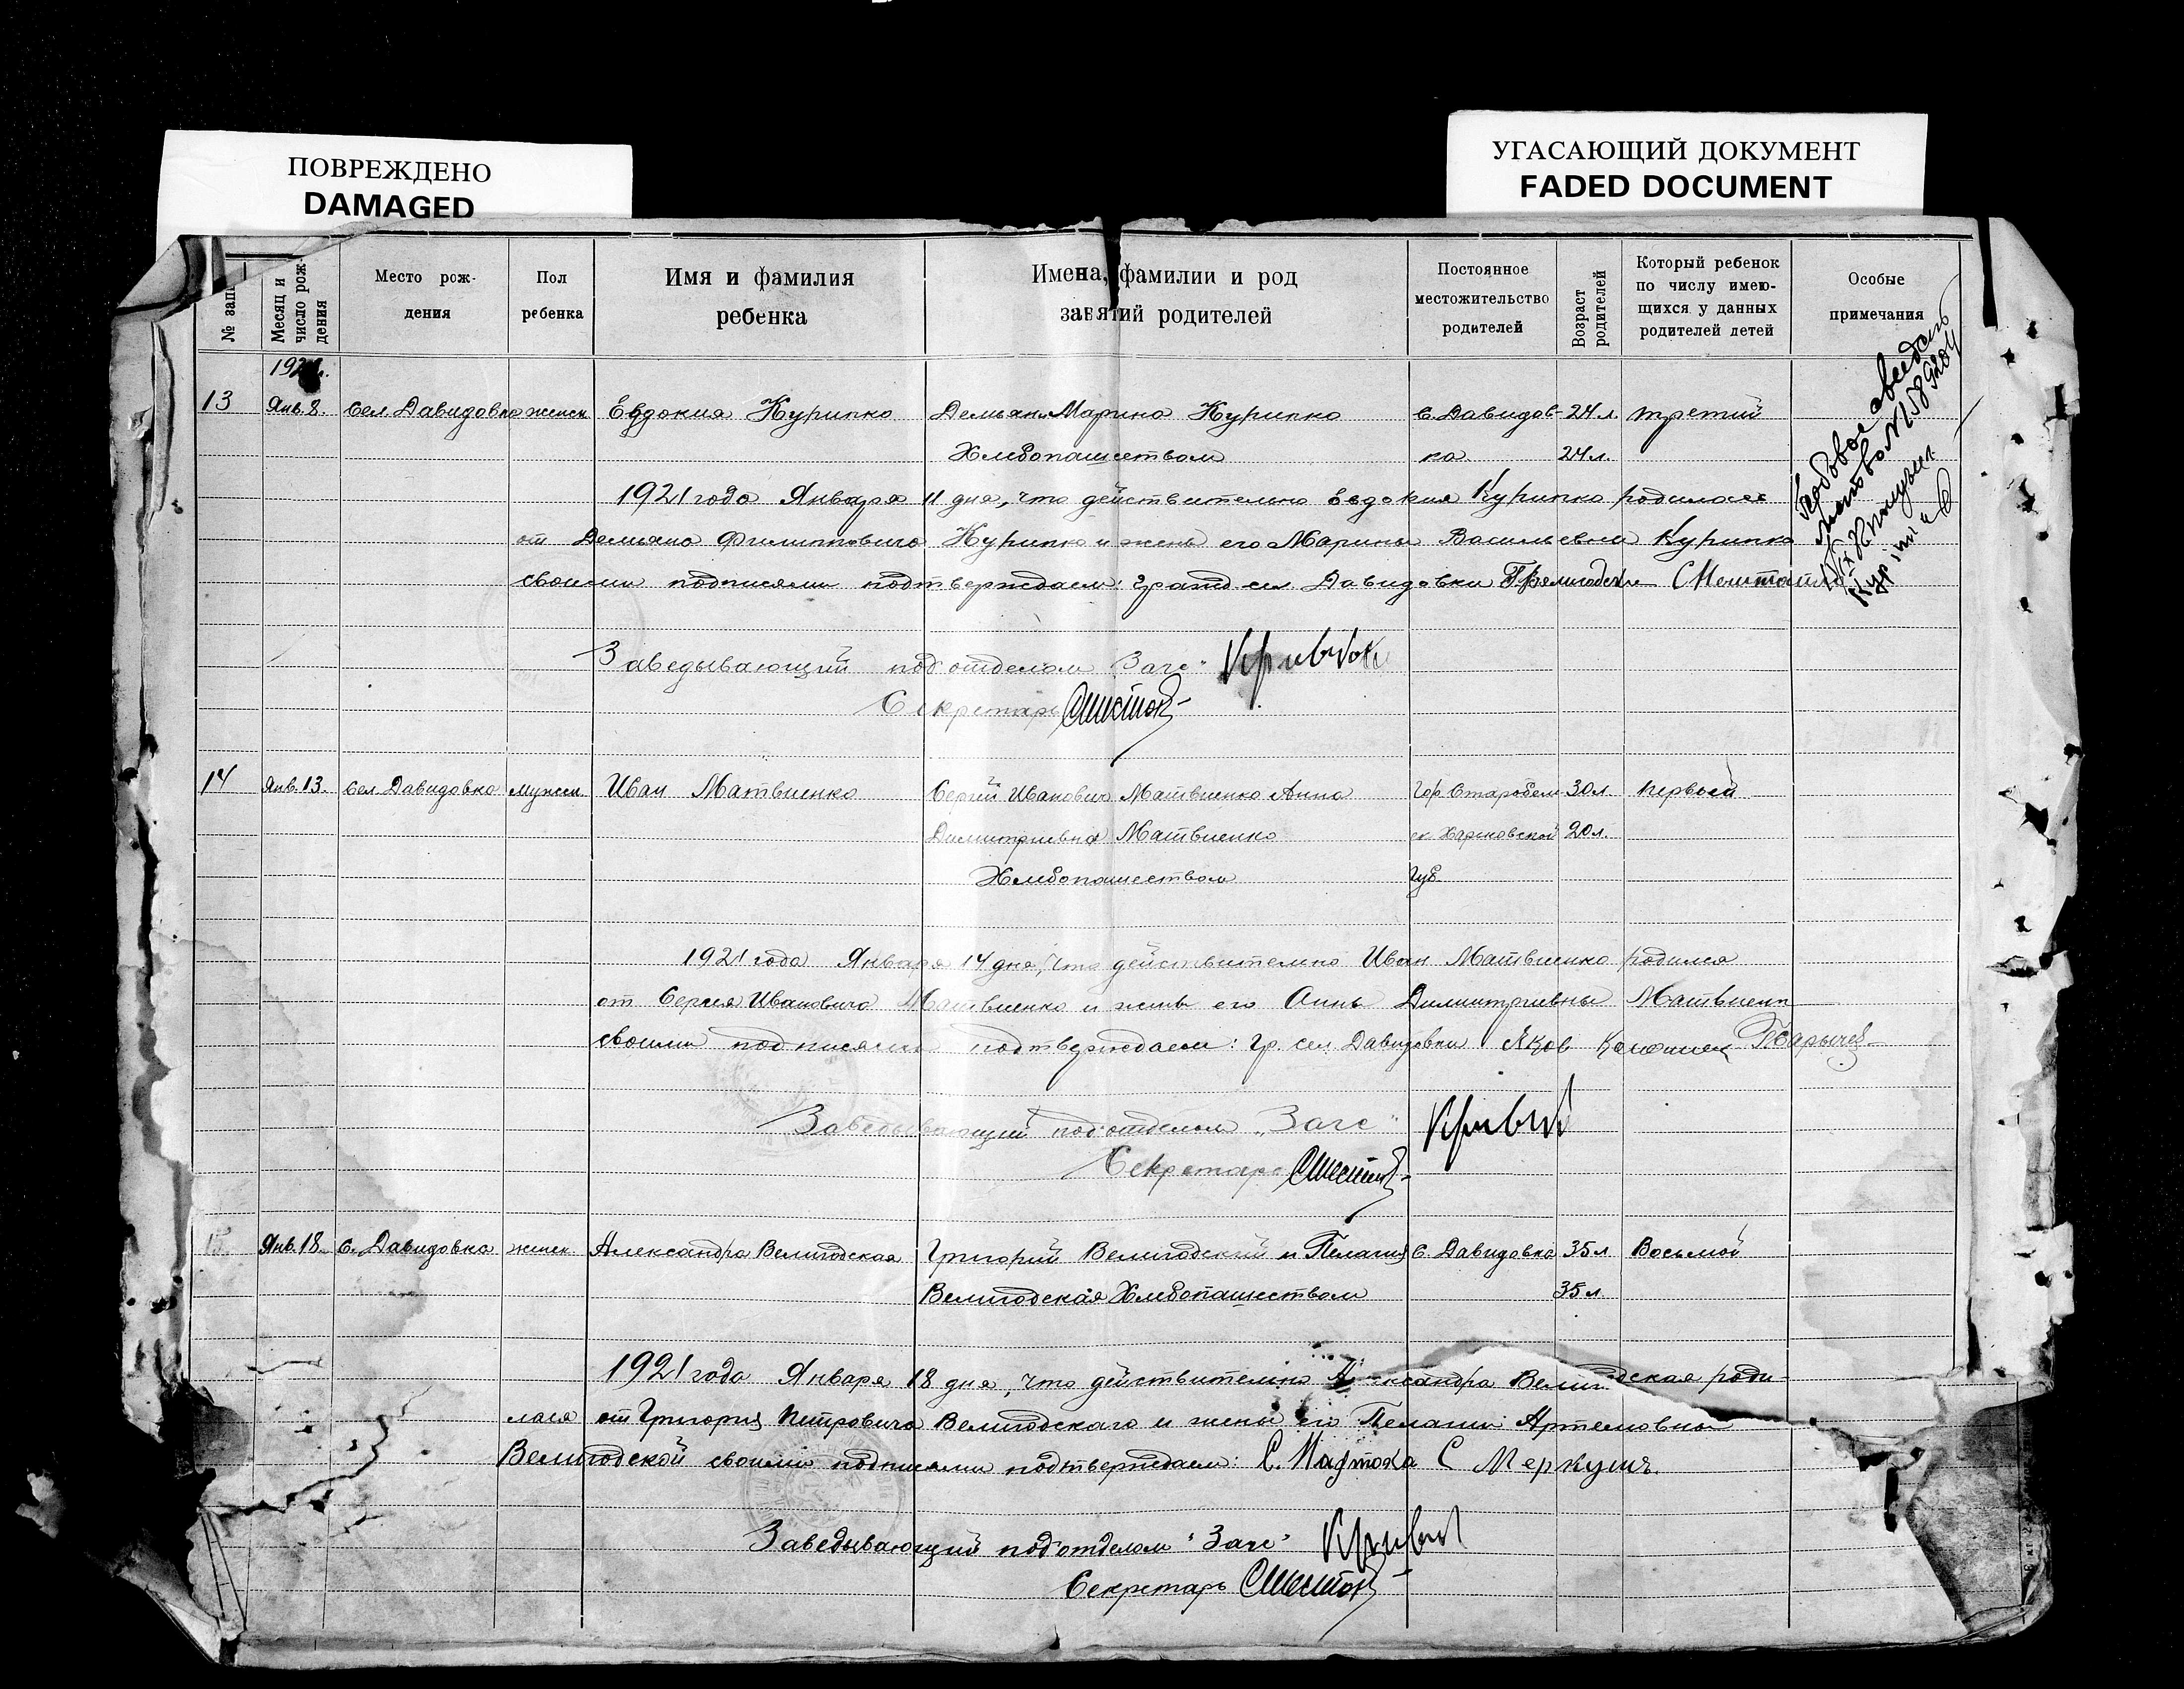 ПОВРЕЖДЕНО
DAMAGED
УГАСАЮЩИЙ ДОКУМЕНТ
FADED DOCUMENT
№ запи
Месяц и число рождения
Место рождения
Пол ребенка
Имя и фамилия ребенка
Имена, фамилии и род занятий родителей
Постоянное местожительство родителей
Возраст родителей
Который ребенок по числу имеющихся у данных родителей детей
Особые примечания
1921.
13 Янв. 8. Сел. Давидовка женск Евдокия Курипко Демьян Марина Курипко С. Давидов- 24 л. третий
Хлебопашеством ка. 24 л.
1921 года Января 11 дня, что действительно Евдокия Курипко родилась
от Демьяна Филипповича Курипко и жены его Марины Васильевны Курипко
своими подписями подтверждаем: гражд сел Давидовки
Заведывающий подотделом Загс"
Секретарь
14 Янв. 13. Сел. Давидовка мужск. Иван Матвиенко Сергей Иванович Матвиенко Анна Гор. Старобельск 30 л. первый
Димитриевна Матвиенко Харьковской 20 л.
Хлебопашеством Губ.
1921 года Января 14 дня, что действительно Иван Матвиенко родился
от Сергея Ивановича Матвиенко и жены его Анны Димитриевны Матвиенк
своими подписями подтверждаем: Гр. сел. Давидовки Яков
Заведывающий подотделом „Загс"
Секретарь
15. Янв. 18. С. Давидовка женск Александра Велигодская Григорий Велигодский и Пелагия С. Давидовка 35 л Восьмой
Велигодская Хлебопашеством 35 л.
1921 года Января 18 дня, что действительно Александра Велигодская роди-
лася от Григория Петровича Велигодскаго и жены его Пелагии Артемовны
Велигодской своими подписями подтверждаем: С. С Меркуш
Заведывающий подотделом "Загс"
Секретарь